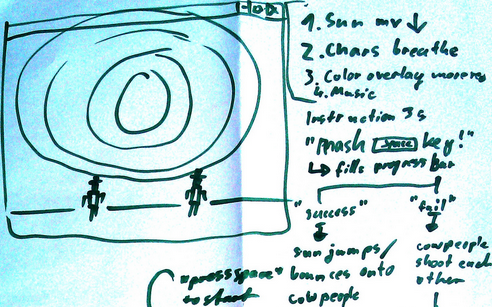 1. Sun mv ↓
2. Chars breathe
3. Color overlay
4. Music
Instruction 3s
"mash [space] key!"
↳ fills progress bar
"success"
"fail"
sun jumps/
bounces onto
cowpeople
cowpeople
shoot each
other
"press space"
to start